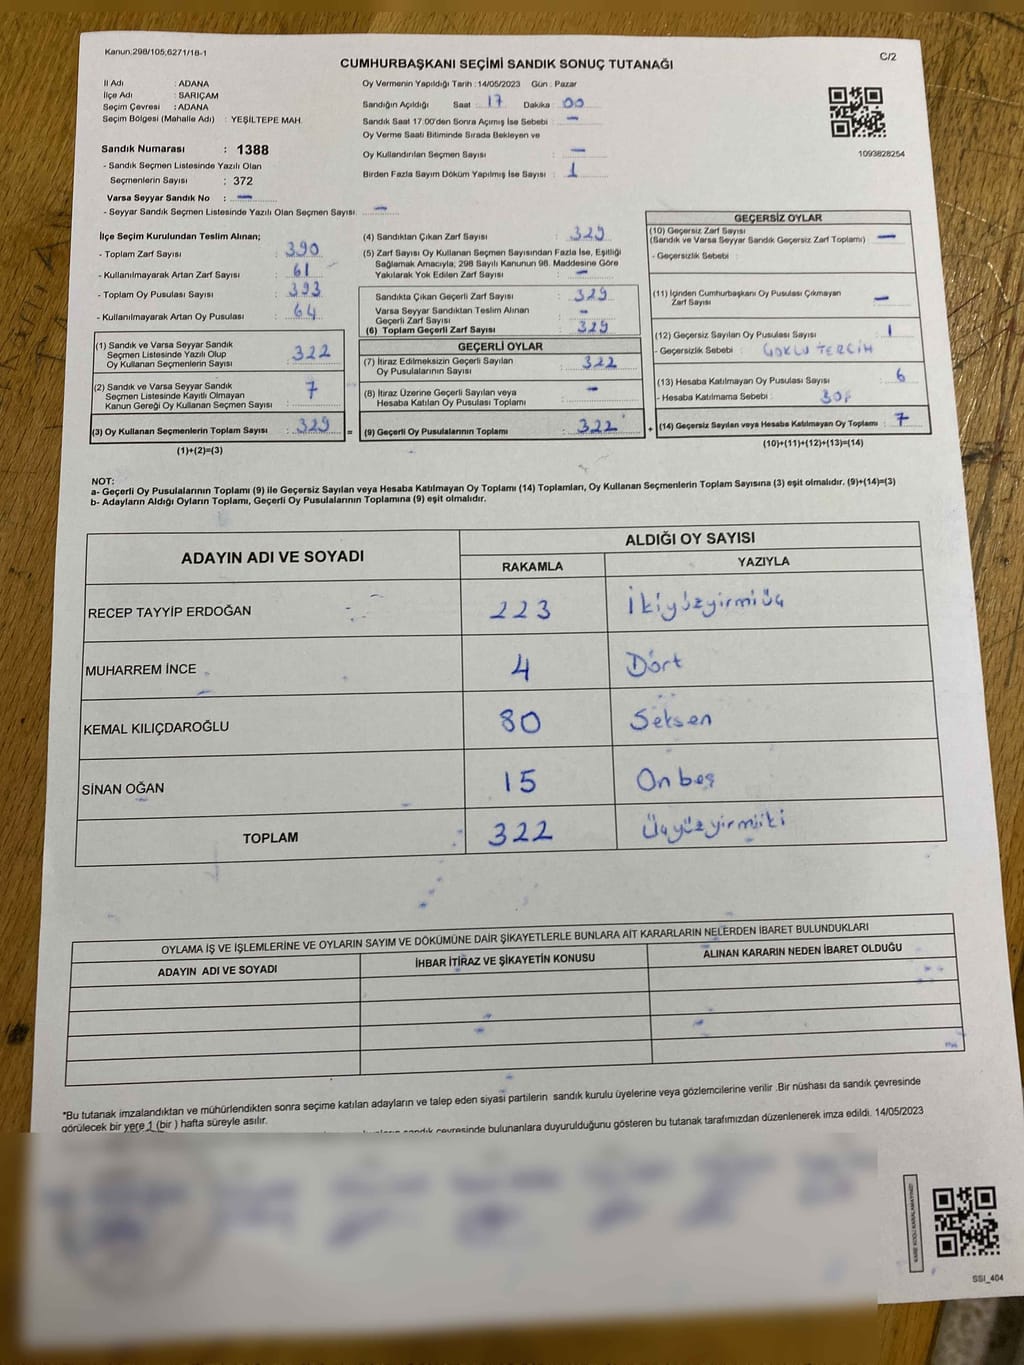 Kanun:298/105;6271/18-1
C/2
CUMHURBAŞKANI SEÇİMİ SANDIK SONUÇ TUTANAĞI
İl Adı : ADANA
İlçe Adı : SARIÇAM
Seçim Çevresi : ADANA
Seçim Bölgesi (Mahalle Adı) : YEŞİLTEPE MAH.
Sandık Numarası : 1388
- Sandık Seçmen Listesinde Yazılı Olan
Seçmenlerin Sayısı : 372
Varsa Seyyar Sandık No : –
- Seyyar Sandık Seçmen Listesinde Yazılı Olan Seçmen Sayısı. –
Oy Vermenin Yapıldığı Tarih : 14/05/2023 Gün : Pazar
Sandığın Açıldığı Saat : 17 Dakika : 00
Sandık Saat 17:00'den Sonra Açımış İse Sebebi : –
Oy Verme Saati Bitiminde Sırada Bekleyen ve
Oy Kullandırılan Seçmen Sayısı : –
Birden Fazla Sayım Döküm Yapılmış İse Sayısı : 1
1093828254
İlçe Seçim Kurulundan Teslim Alınan;
- Toplam Zarf Sayısı : 390
- Kullanılmayarak Artan Zarf Sayısı : 61
- Toplam Oy Pusulası Sayısı : 393
- Kullanılmayarak Artan Oy Pusulası : 64
(1) Sandık ve Varsa Seyyar Sandık
Seçmen Listesinde Yazılı Olup
Oy Kullanan Seçmenlerin Sayısı : 322
(2) Sandık ve Varsa Seyyar Sandık
Seçmen Listesinde Kayıtlı Olmayan
Kanun Gereği Oy Kullanan Seçmen Sayısı : 7
(3) Oy Kullanan Seçmenlerin Toplam Sayısı : 329 =
(1)+(2)=(3)
(4) Sandıktan Çıkan Zarf Sayısı : 329
(5) Zarf Sayısı Oy Kullanan Seçmen Sayısından Fazla İse, Eşitliği
Sağlamak Amacıyla; 298 Sayılı Kanunun 98. Maddesine Göre
Yakılarak Yok Edilen Zarf Sayısı : –
Sandıkta Çıkan Geçerli Zarf Sayısı : 329
Varsa Seyyar Sandıktan Teslim Alınan
Geçerli Zarf Sayısı : –
(6) Toplam Geçerli Zarf Sayısı : 329
GEÇERLİ OYLAR
(7) İtiraz Edilmeksizin Geçerli Sayılan
Oy Pusulalarının Sayısı : 322
(8) İtiraz Üzerine Geçerli Sayılan veya
Hesaba Katılan Oy Pusulası Toplamı : –
(9) Geçerli Oy Pusulalarının Toplamı : 322 +
GEÇERSİZ OYLAR
(10) Geçersiz Zarf Sayısı : –
(Sandık ve Varsa Seyyar Sandık Geçersiz Zarf Toplamı)
- Geçersizlik Sebebi :
(11) İçinden Cumhurbaşkanı Oy Pusulası Çıkmayan
Zarf Sayısı : –
(12) Geçersiz Sayılan Oy Pusulası Sayısı : 1
- Geçersizlik Sebebi : ÇOKLU TERCİH
(13) Hesaba Katılmayan Oy Pusulası Sayısı : 6
- Hesaba Katılmama Sebebi : BOŞ
(14) Geçersiz Sayılan veya Hesaba Katılmayan Oy Toplamı : 7
(10)+(11)+(12)+(13)=(14)
NOT:
a- Geçerli Oy Pusulalarının Toplamı (9) ile Geçersiz Sayılan veya Hesaba Katılmayan Oy Toplamı (14) Toplamları, Oy Kullanan Seçmenlerin Toplam Sayısına (3) eşit olmalıdır. (9)+(14)=(3)
b- Adayların Aldığı Oyların Toplamı, Geçerli Oy Pusulalarının Toplamına (9) eşit olmalıdır.
ADAYIN ADI VE SOYADI
ALDIĞI OY SAYISI
RAKAMLA YAZIYLA
RECEP TAYYİP ERDOĞAN 223 İkiyüzyirmiüç
MUHARREM İNCE 4 Dört
KEMAL KILIÇDAROĞLU 80 Seksen
SİNAN OĞAN 15 Onbeş
TOPLAM 322 Üçyüzyirmiiki
OYLAMA İŞ VE İŞLEMLERİNE VE OYLARIN SAYIM VE DÖKÜMÜNE DAİR ŞİKAYETLERLE BUNLARA AİT KARARLARIN NELERDEN İBARET BULUNDUKLARI
ADAYIN ADI VE SOYADI İHBAR İTİRAZ VE ŞİKAYETİN KONUSU ALINAN KARARIN NEDEN İBARET OLDUĞU
*Bu tutanak imzalandıktan ve mühürlendikten sonra seçime katılan adayların ve talep eden siyasi partilerin sandık kurulu üyelerine veya gözlemcilerine verilir .Bir nüshası da sandık çevresinde
görülecek bir yere 1 (bir ) hafta süreyle asılır.
sandık çevresinde bulunanlara duyurulduğunu gösteren bu tutanak tarafımızdan düzenlenerek imza edildi. 14/05/2023
SSİ_404